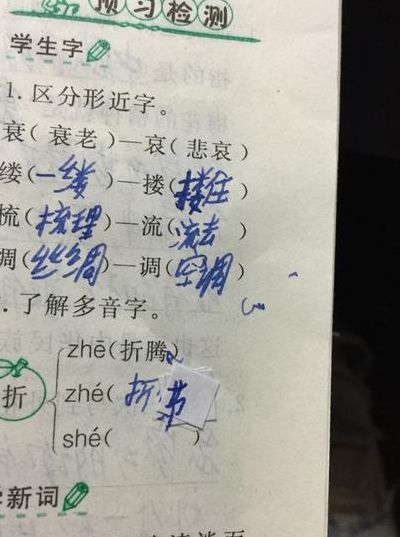 预习检测
学生字
1.区分形近字。
衰(衰老)—哀(悲哀)
缕(一缕)—搂(搂住)
梳(梳理)—流(流去)
绸(丝绸)—调(空调)
.了解多音字。
zhē(折腾)
折 zhé(折节
shé( )
新词